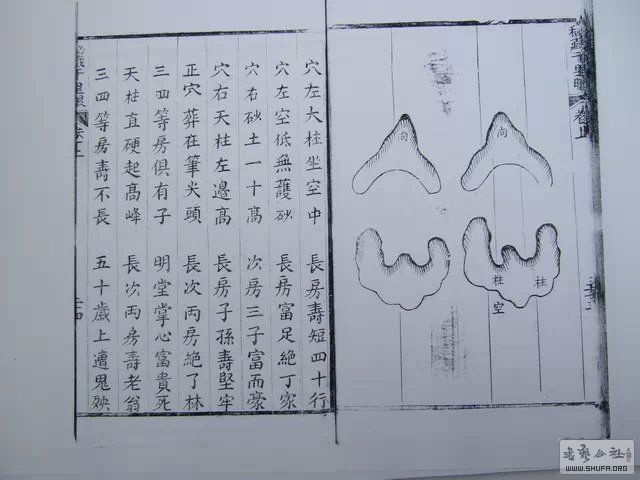 向
向
柱
柱
空
穴左大柱坐空中 長房壽短四十行
穴左空低無護砂 長房富足絶丁家
穴右砂土一十高 次房三子富而豪
穴右天柱左邊高 長房子孫壽堅牢
正穴葬在筆尖頭 長次丙房絶了林
三四等房俱有子 明堂掌心富貴死
天柱直硬起高峰 長次丙房壽老翁
三四等房壽不長 五十歲上遭鬼殃
書藝公社
WWW.SHUFA.ORG